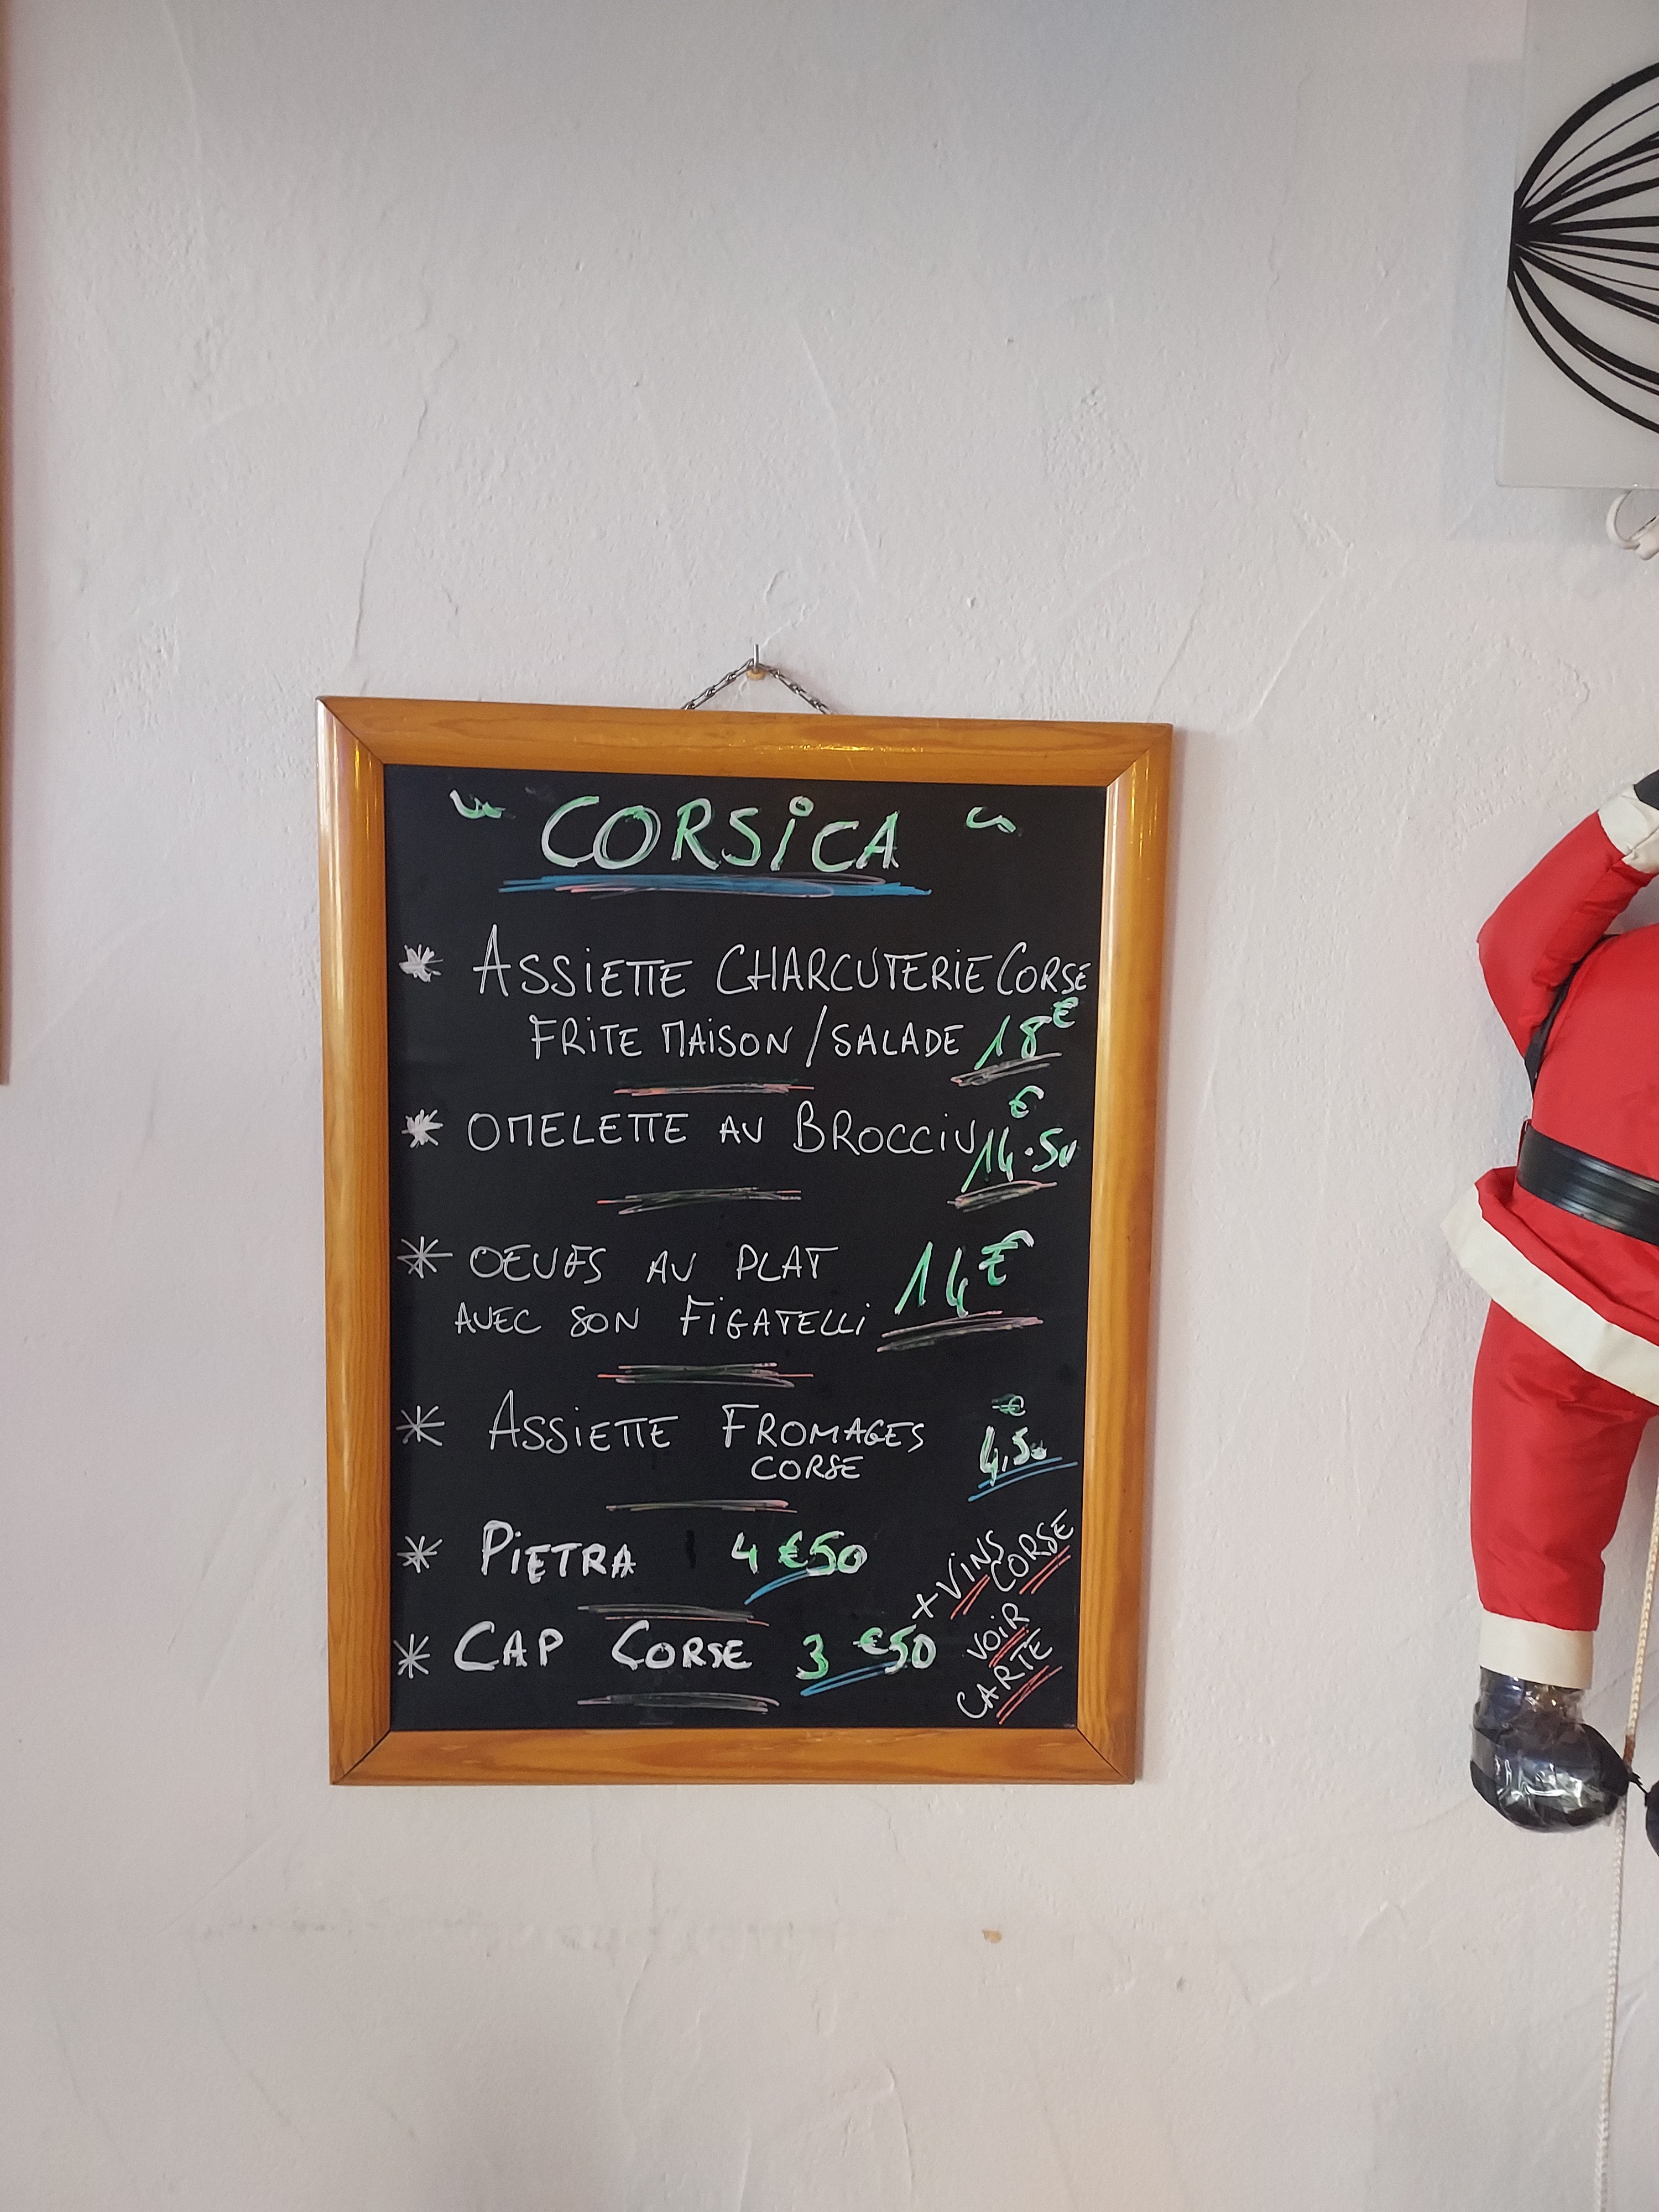 " CORSICA "
* ASSIETTE CHARCUTERIE CORSE
FRITE MAISON / SALADE 18€
* OMELETTE AU BROCCIU 14.50 €
* OEUFS AU PLAT 14€
AVEC SON FIGATELLI
* ASSIETTE FROMAGES 4,50 €
CORSE
* PIETRA 4 €50
* CAP CORSE 3 €50
+ VINS
CORSE
VOIR
CARTE